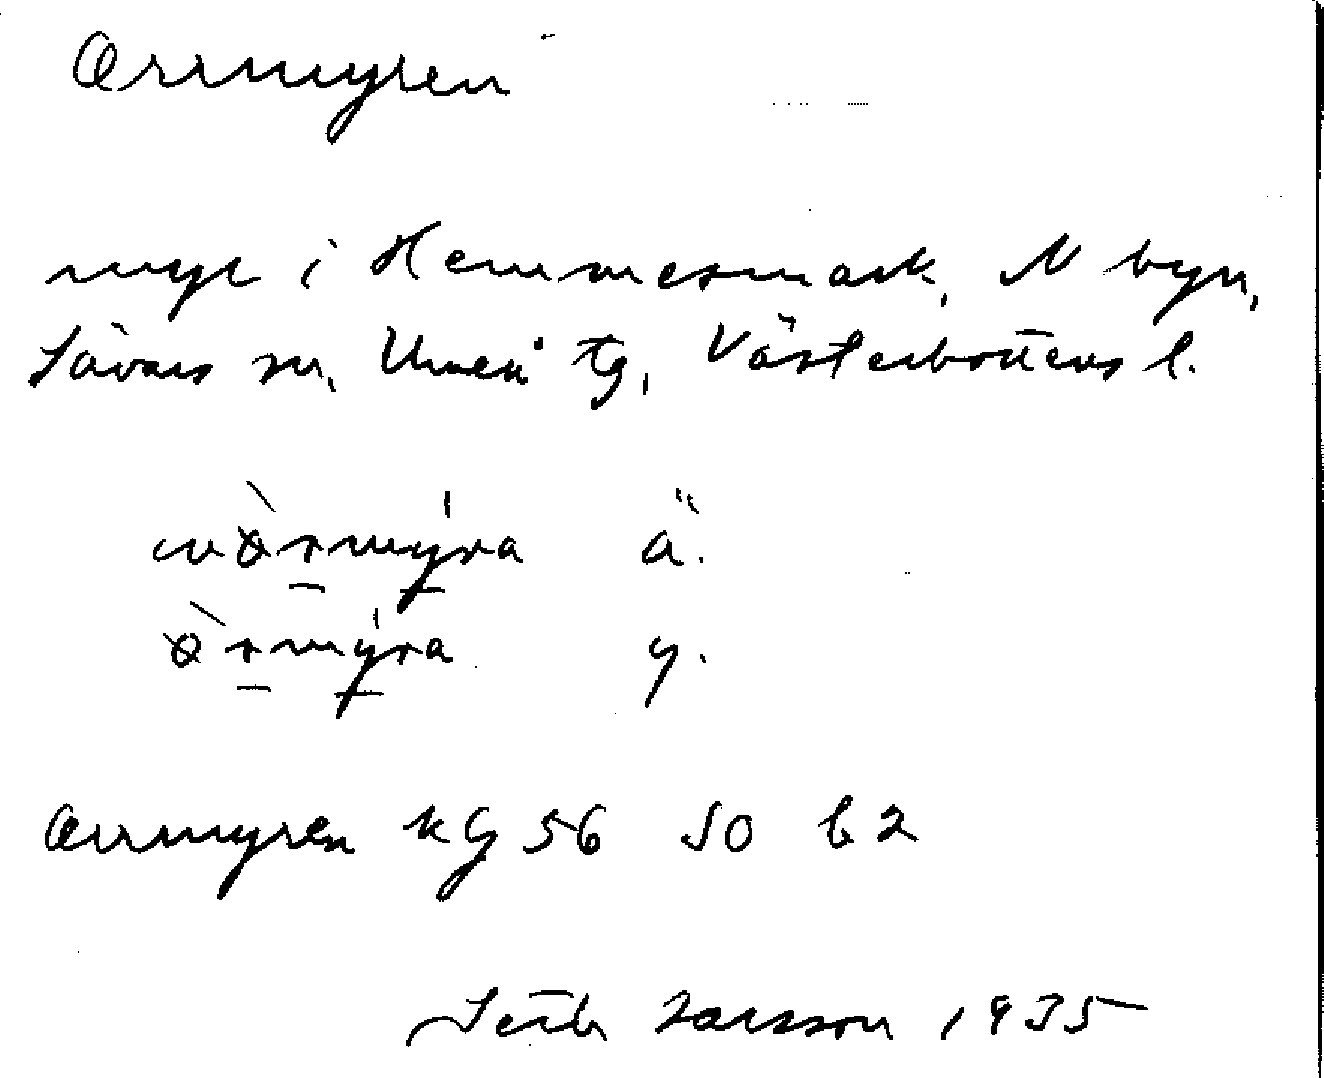 Orrmyren
myr i Hemmesmark, N byn,
Sävars sn, Umeå tg, Västerbottens l.
ä.
y.
Orrmyren kg 56 SO b 2
Seth Larsson 1935